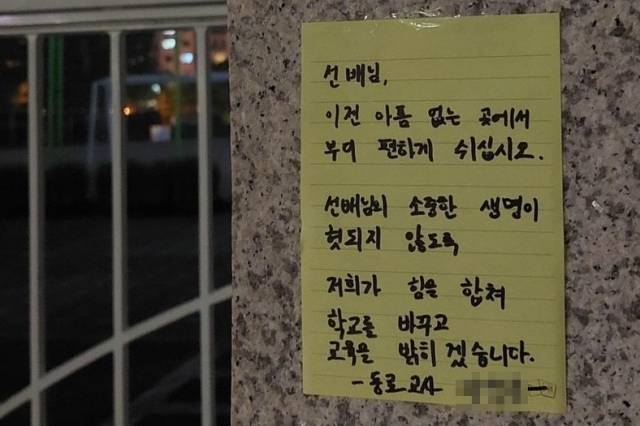 선배님,
이젠 아픔 없는 곳에서
부디 편하게 쉬십시오.
선배님의 소중한 생명이
헛되지 않도록
저희가 힘을 합쳐
학교를 바꾸고
교육을 밝히겠습니다.
- 동료교사